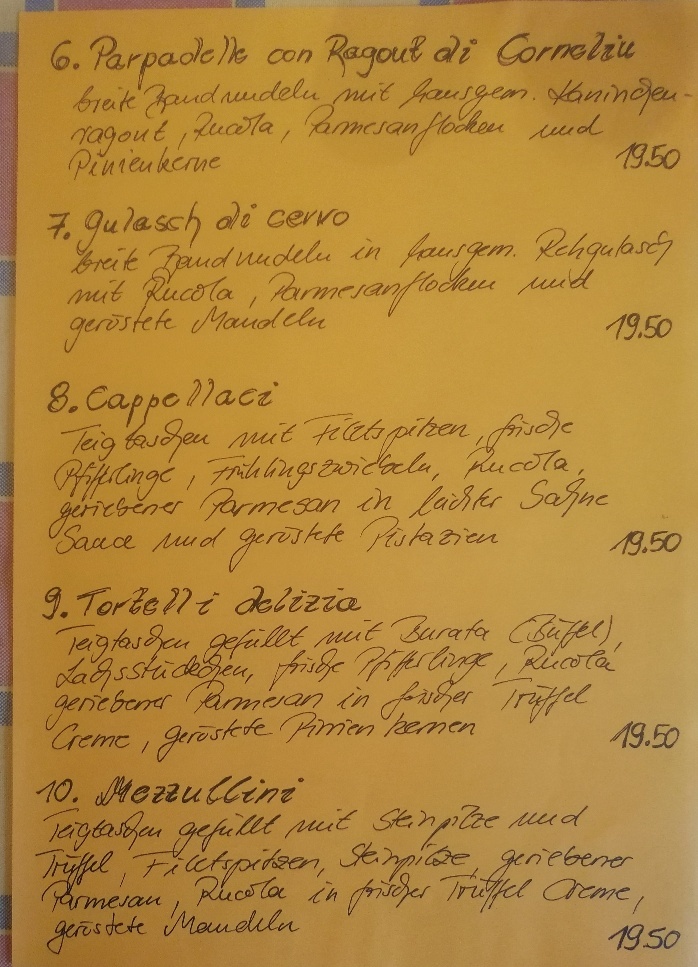 6. Parpadelle con Ragout di Corneliu
breite Bandnudeln mit hausgem. Kaninchen-
ragout, Rucola, Parmesanflocken und
Pinienkerne 19.50
7. gulasch di cervo
breite Bandnudeln in hausgem. Rehgulasch
mit Rucola, Parmesanflocken und
geröstete Mandeln 19.50
8. Cappellaci
Teigtaschen mit Filetspitzen, frische
Pfifferlinge, Frühlingszwiebeln, Rucola,
geriebener Parmesan in leichter Sahne
Sauce und geröstete Pistazien 19.50
9. Tortelli delizia
Teigtaschen gefüllt mit Burata (Büffel),
Lachsstückchen, frische Pfifferlinge, Rucola
geriebener Parmesan in frischer Trüffel
Creme, geröstete Pinienkernen 19.50
10. Mezzullini
Teigtaschen gefüllt mit Steinpilze und
Trüffel, Filetspitzen, Steinpilze, geriebener
Parmesan, Rucola in frischer Trüffel Creme,
geröstete Mandeln 19.50